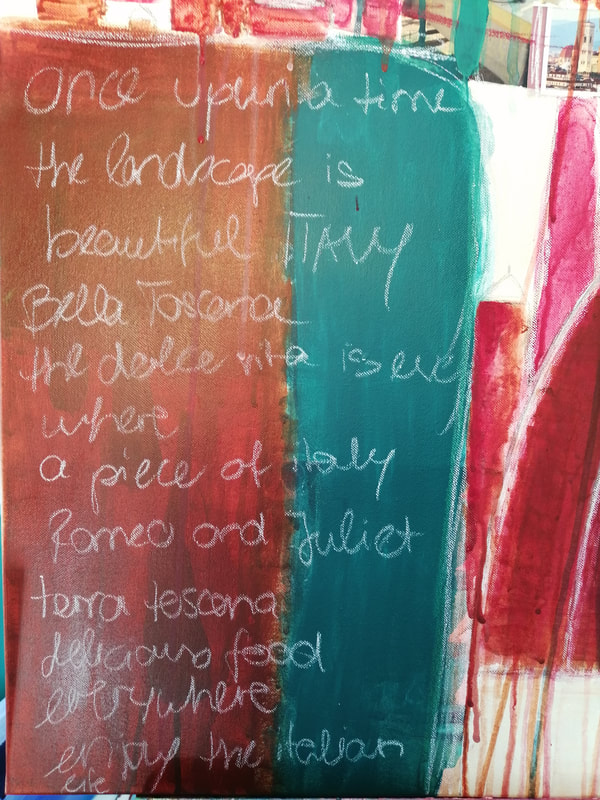 Once upon a time
the landscape is
beautiful ITALY
Bella Toscana
the dolce vita is every
where
a piece of italy
Romeo and Juliet
terra toscana
delicious food
everywhere
enjoy the italian
life